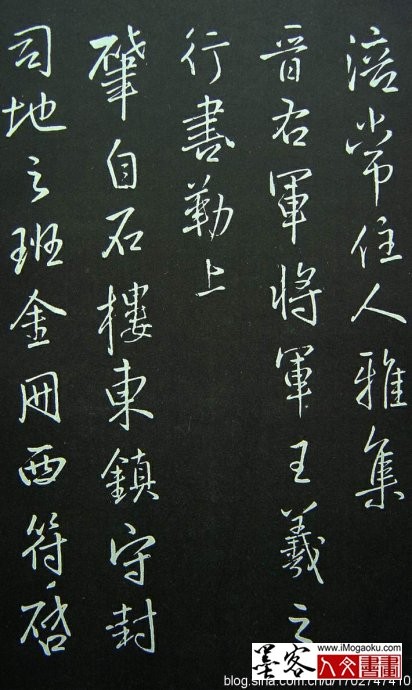 涪常住人雅集
晉右軍將軍王羲之
行書勒上
肇自石樓東鎮守封
司地之班金冊西符啓
www.iMogaoku.com
墨客
人文書畫
blog.sina.com.cn/u/1702747410